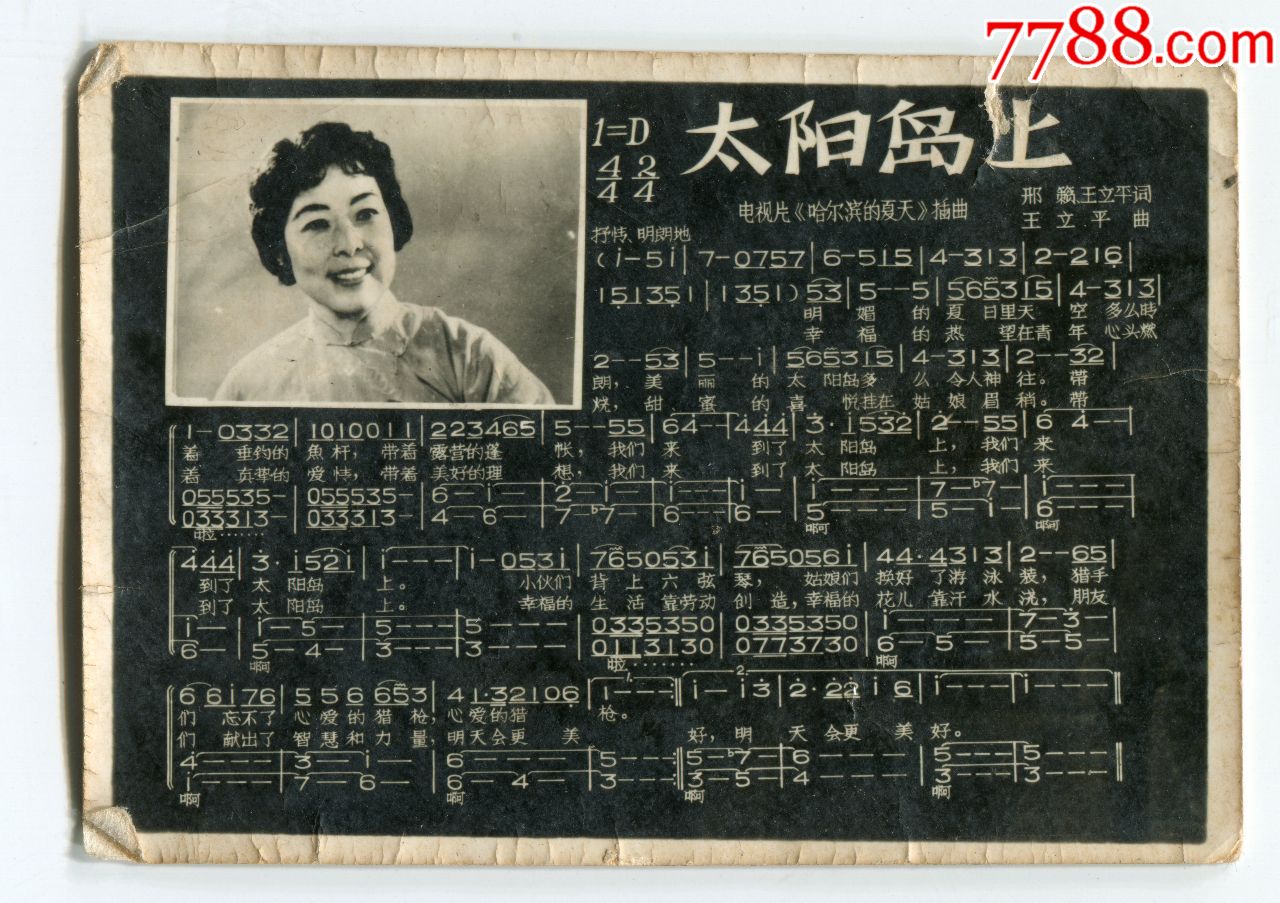 7788.com
太阳岛上
1=D
4/4 2/4
电视片《哈尔滨的夏天》插曲
邢籁、王立平词
王立平曲
抒情、明朗地
(i-5i|7-0757|6-515|4-313|2-216|
151351|1351)53|5--5|565315|4-313|
明媚的夏日里天空多么晴
幸福的热望在青年心头燃
2--53|5--i|565315|4-313|2--32|
朗,美丽的太阳岛多么令人神往。带
烧,甜蜜的喜悦挂在姑娘眉稍。带
1-0332|1010011|223465|5--55|64--|444|3·1532|2--55|64--|
着垂钓的魚杆,带着露营的蓬帐,我们来到了太阳岛上,我们来
着真挚的爱情,带着美好的理想,我们来到了太阳岛上,我们来
055535-|055535-|6-i-|2-i-|i--|i--|i---|7-♭7-|i---|
033313-|033313-|4-6-|7-♭7-|6---|6-|5---|5-i-|6---|
啦……
啊 啊
444|3·1521|1---|1-0531|7650531|7650561|44·4313|2--65|
到了太阳岛上。小伙们背上六弦琴,姑娘们换好了游泳装,猎手
到了太阳岛上。幸福的生活靠劳动创造,幸福的花儿靠汗水浇,朋友
i-|i-5-|5---|5---|0335350|0335350|i---|7-3-|
6-|5-4-|3---|3---|0113130|0773730|6-5-|5-5-|
啊 啦…… 啊
66176|556653|41·32106|1.i---|2.i-i3|2·22i6|i---|i---|
们忘不了心爱的猎枪,心爱的猎枪。
们献出了智慧和力量,明天会更美好,明天会更美好。
4---|3-i-|6---|5---|5-♭7-|6---|5---|5---|
i---|7-6-|6-4-|3---|3-5-|4---|3---|3---|
啊 啊 啊 啊